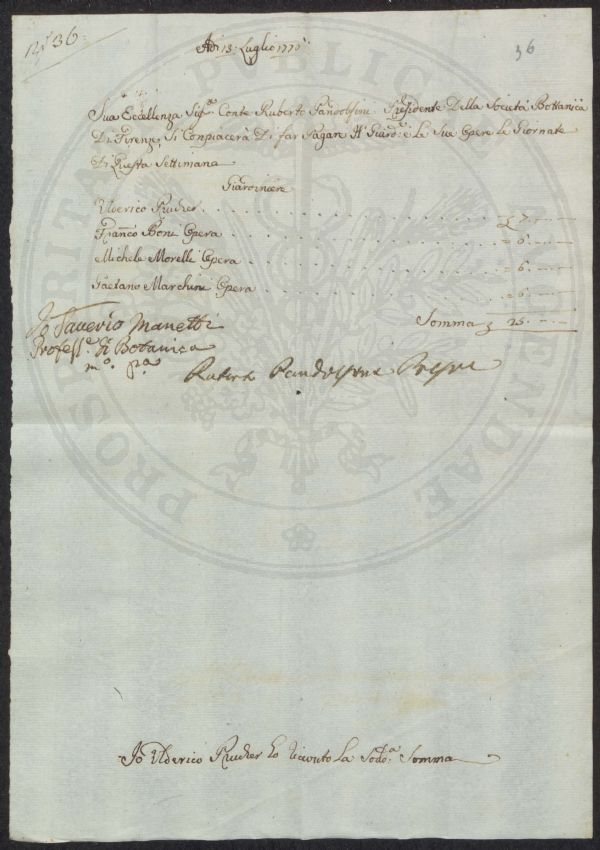 N° 36.
36
Adì 13: Luglio 1770
Sua Eccellenza Sig:re Conte Ruberto Pandolfini Presidente Della Società Bottanica
Di Firenze, Si Conpiacerà Di far Pagare Al Giard:e e La Sua Opere Le Giornate
Di Questa Settimana
Giardiniere
Ulderico Prucher . . . £ 7. —
Franco Boni Opera . . . = 6. —
Michele Morelli Opera . . . = 6. —
Gaetano Marchini Opera . . . = 6. —
Somma £ 25. —
Io Saverio Manetti
Profess:e di Botanica
m.o p.a
Ruberto Pandolfini Presid:e
Io Ulderico Prucher ho ricevuto La Sodd:a Somma
PROSPERITATI PUBLICAE AUGENDAE